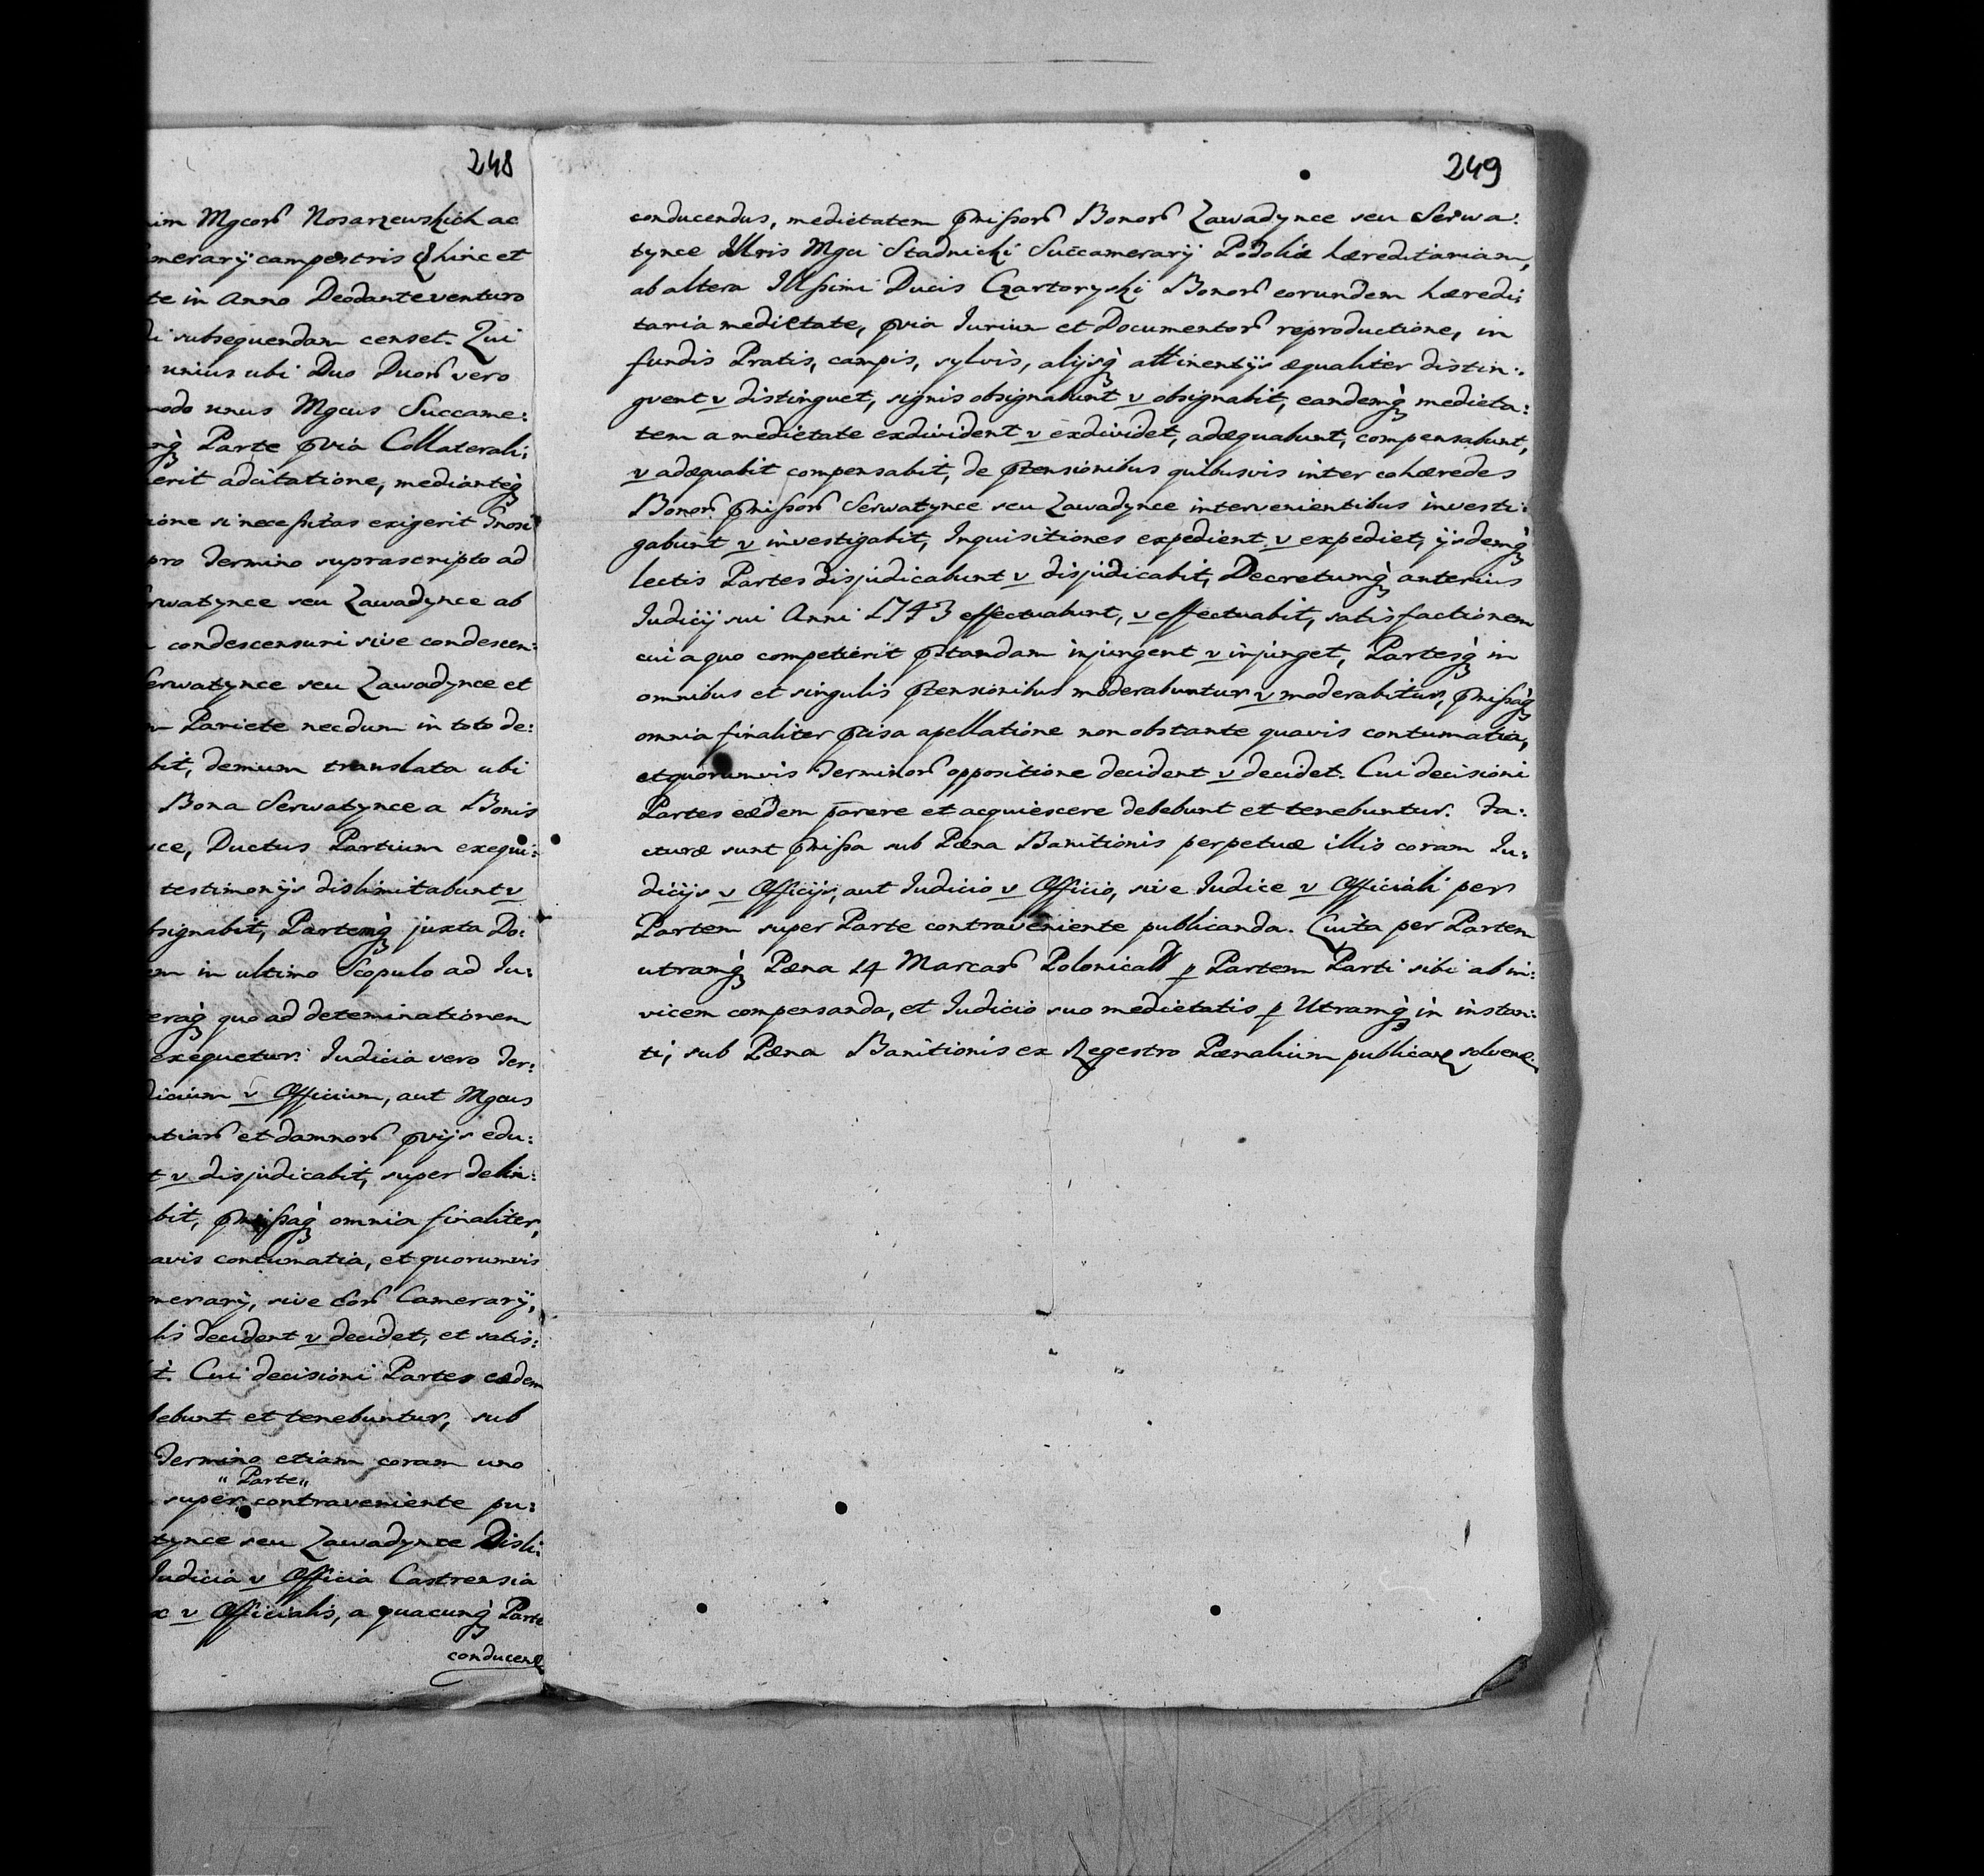 248
im Mgcor̃ Nosarzewskich ac
merarij campestris Qhinc et
te in Anno Deodante venturo
di subsequendam censet. Qui
unius ubi Duo Duor̃ vero
modo unus Mgcus Succame:
mq̀ Parte pvia Collaterali:
erit adcitatione, medianteq̀
ione si necessitas exigerit
pro Termino suprascripto ad
rwatynce seu Zawadynce ab
condescensuri sive condescen:
Serwatynce seu Zawadynce et
Pariete necdum in toto de:
bit, demum translata ubi
Bona Serwatynce a Bonis
ce, Ductus Partium exequi:
testimonijs dislimitabunt v
bsignabit, Partemq̀ juxta Do:
em in ultimo Scopulo ad Ju:
eraq̀ quo ad deteminationem
exequetur. Judicia vero Ter:
dicium v Officium, aut Mgcus
ntiar̃ et damnor̃ pvijs edu:
t v disjudicabit, super delin:
bit, pmissaq̀ omnia finaliter,
avis contumatia, et quorumvis
merarij, sive eor̃ Camerarij,
lis decident v decidet, et satis:
t. Cui decisioni Partes eædem
bebunt et tenebuntur, sub
Termino etiam coram uno
" Parte "
super contraveniente pu:
tynce seu Zawadynce Disli:
Judicia v Officia Castrensia
x v Officialis, a quacunq̀ Parte
conducend
249
conducendus, medietatem pmissor̃ Bonor̃ Zawadynce seu Serwa:
tynce Illris Mgci Stadnicki Succamerarij Podoliæ hæreditariam,
ab altera Illssimi Ducis Czartoryski Bonor̃ eorundem hæredi:
taria medietate, pvia Jurium et Documentor̃ reproductione, in
fundis Pratis, campis, sylvis, alijsq̀ attinentijs æqualiter distin:
guent v distinguet, signis obsignabunt v obsignabit, eandemq̀ medieta:
tem a medietate exdivident v exdividet, adæquabunt, compensabunt,
v adæquabit compensabit, de ptensionibus quibusvis inter cohæredes
Bonor̃ pmissor̃ Serwatynce seu Zawadynce intervenientibus investi:
gabunt v investigabit, Inquisitiones expedient v expediet, ijsdemq̀
lectis Partes disjudicabunt v disjudicabit, Decretumq̀ anterius
Judicij sui Anni 1743 effectuabunt, v effectuabit, satisfactionem
cui a quo competierit pstandam injungent v injunget, Partesq̀ in
omnibus et singulis ptensionibus moderabuntur v moderabitur, pmissaq̀
omnia finaliter pcisa apellatione non obstante quavis contumatia,
et quorumvis Terminor̃ oppositione decident v decidet. Cui decisioni
Partes eædem parere et acquiescere debebunt et tenebuntur. Fa:
cturæ sunt pmissa sub Pæna Banitionis perpetuæ illis coram Ju:
dicijs v Officijs, aut Judicio v Officio, sive Judice v Officiali per
Partem super Parte contraveniente publicanda. Luita per Partem
utramq̀ Pæna 14 Marcar̃ Polonicall p Partem Parti sibi ab in:
vicem compensanda, et Judicio suo medietatis p Utramq̀ in instan:
ti, sub Pæna Banitionis ex Regestro Pænalium publicand solvend.